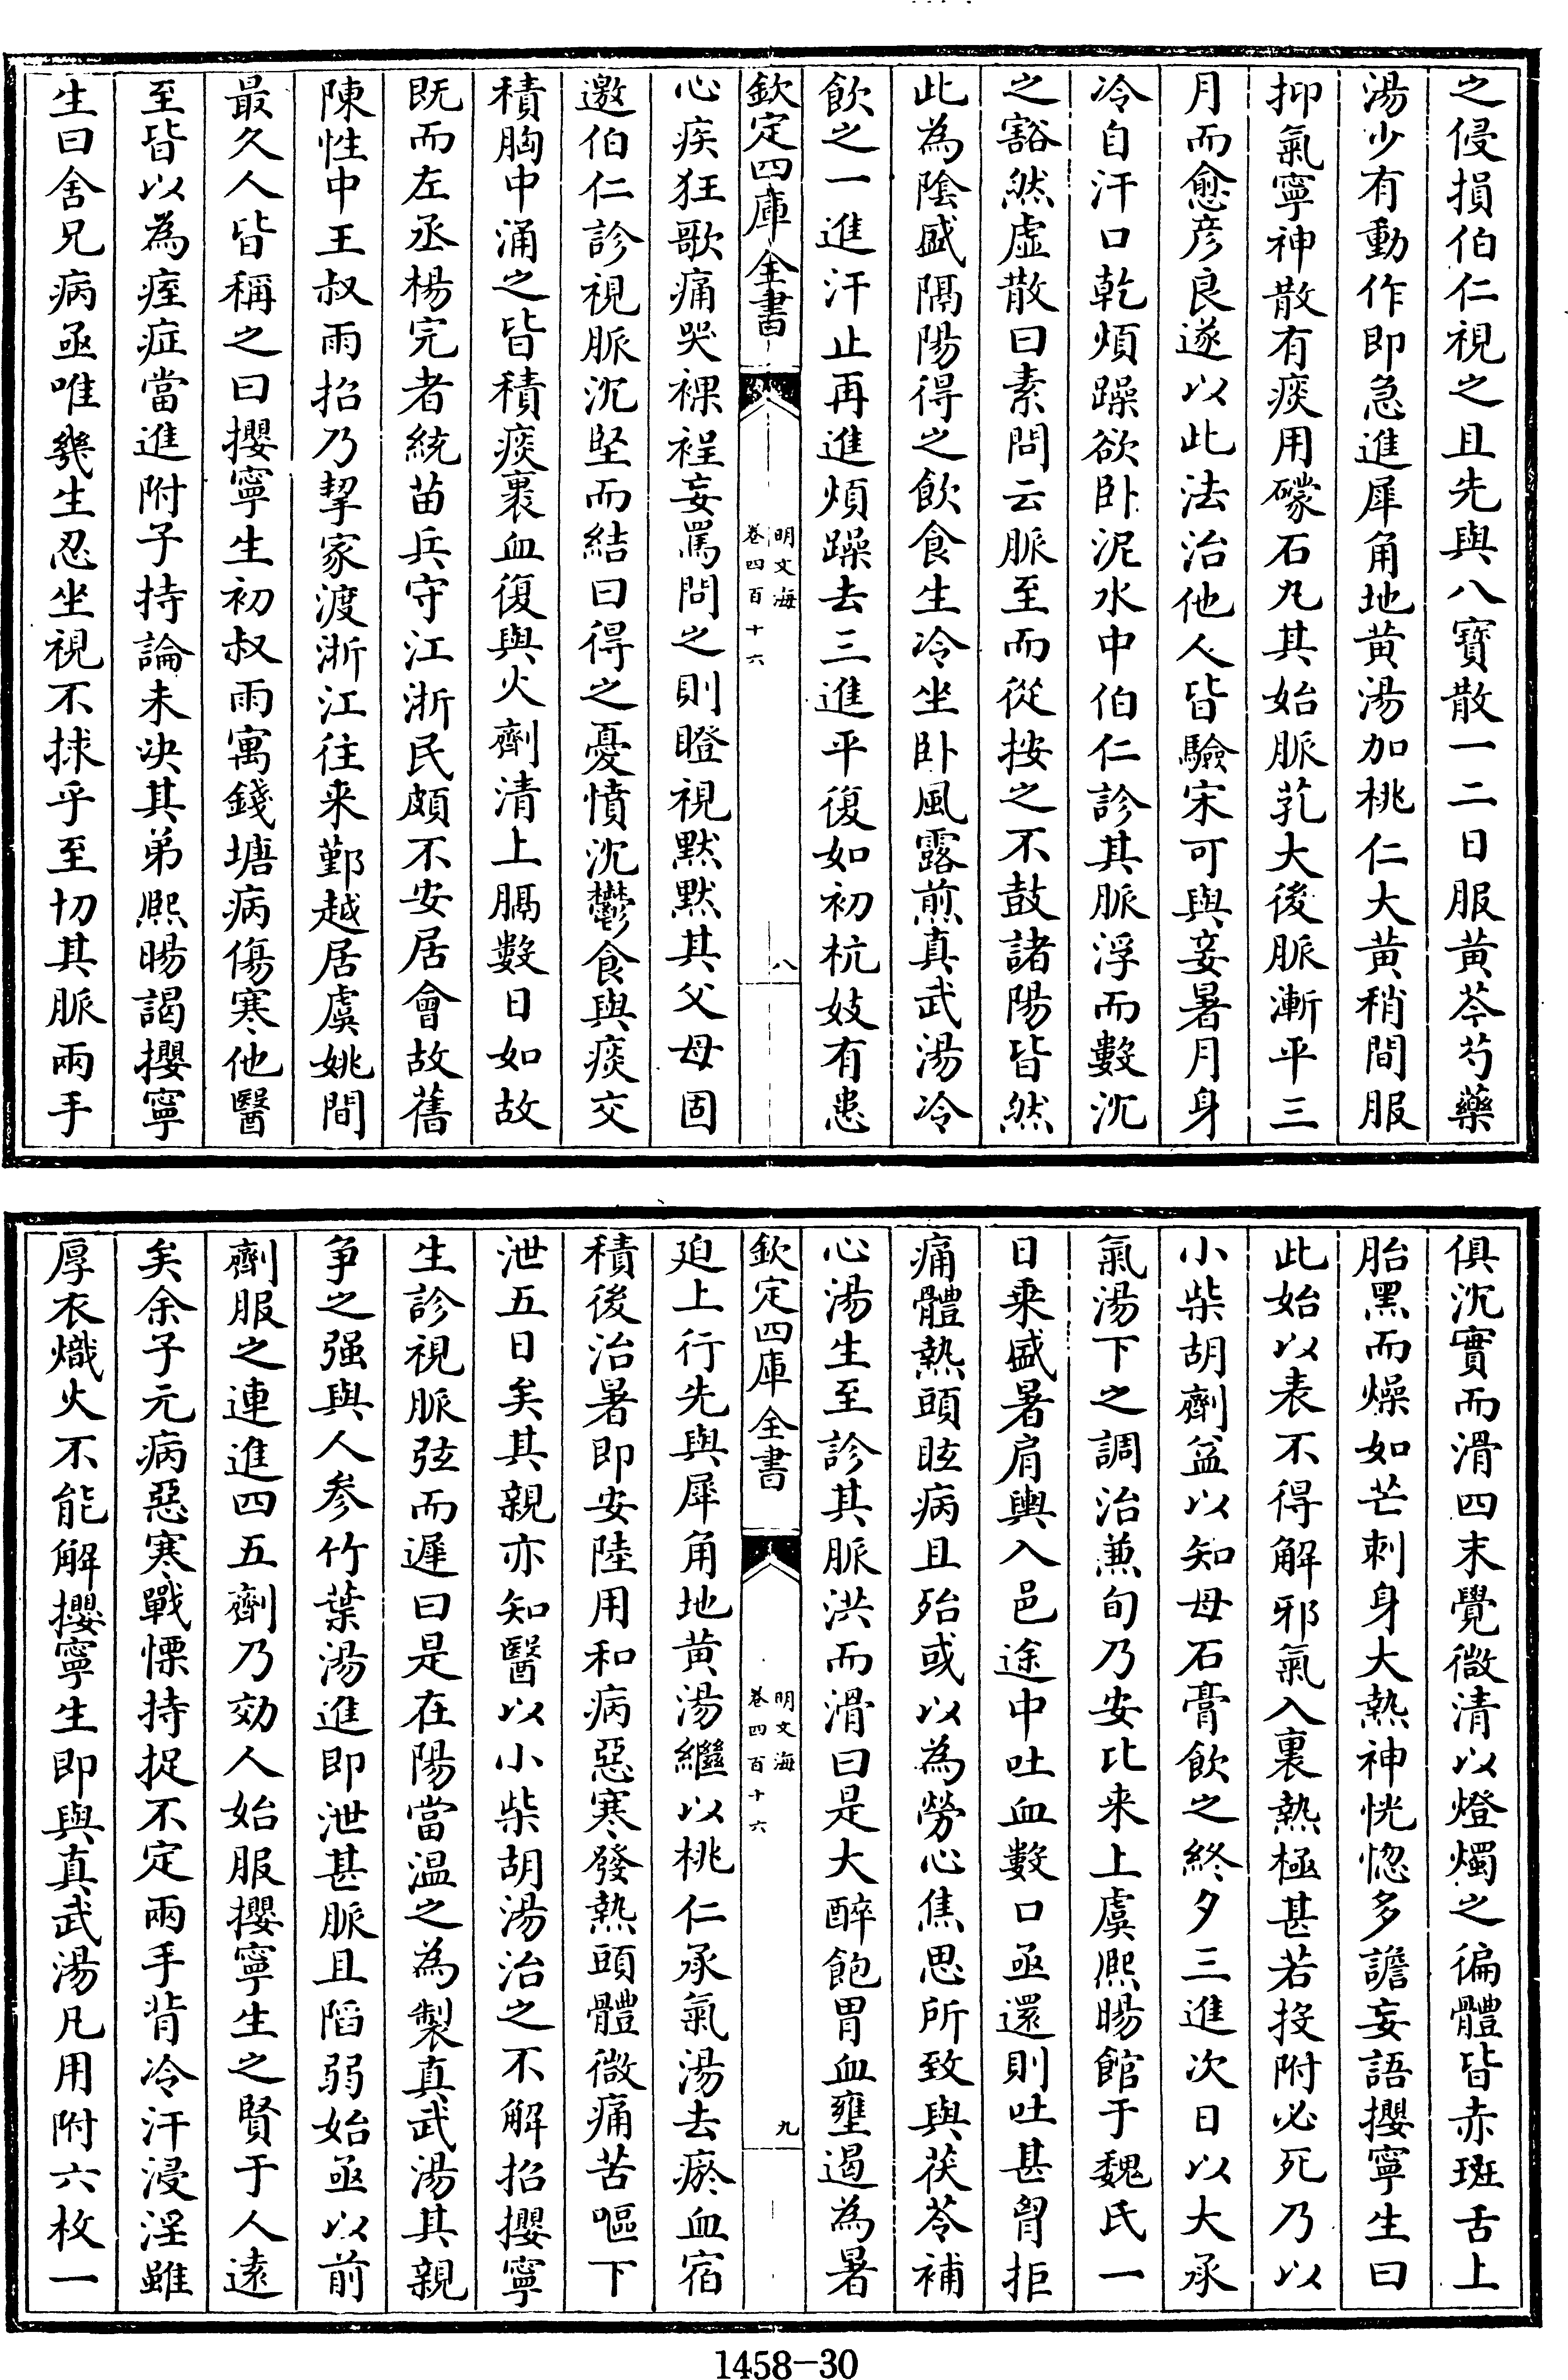 之侵損伯仁視之且先與八寶散一二日服黄芩芍藥
湯少有動作即急進犀角地黄湯加桃仁大黄稍間服
抑氣寧神散有痰用礞石丸其始脈芤大後脈漸平三
月而愈彦良遂以此法治他人皆驗宋可與妾暑月身
冷自汗口乾煩躁欲卧泥水中伯仁診其脈浮而數沉
之豁然虚散曰素問云脈至而從按之不鼓諸陽皆然
此為陰盛隔陽得之飲食生冷坐卧風露煎真武湯冷
飲之一進汗止再進煩躁去三進平復如初杭妓有患
欽定四庫全書
明文海
卷四百十六
八
心疾狂歌痛哭裸裎妄罵問之則瞪視默默其父母固
邀伯仁診視脈沉堅而結曰得之憂憤沉鬱食與痰交
積胸中涌之皆積痰裹血復與火劑清上膈數日如故
既而左丞楊完者統苗兵守江浙民頗不安居會故舊
陳性中王叔雨招乃挈家渡浙江往来鄞越居虞姚間
最久人皆稱之曰攖寧生初叔雨寓錢塘病傷寒他醫
至皆以為痓症當進附子持論未決其弟熙暘謁攖寧
生曰舍兄病亟唯幾生忍坐視不捄乎至切其脈兩手
俱沉實而滑四末覺微清以燈燭之徧體皆赤斑舌上
胎黑而燥如芒刺身大熱神恍惚多譫妄語攖寧生曰
此始以表不得解邪氣入裏熱極甚若投附必死乃以
小柴胡劑益以知母石膏飲之終夕三進次日以大承
氣湯下之調治兼旬乃安比来上虞熙暘館于魏氏一
日乗盛暑肩輿入邑途中吐血數口亟還則吐甚胷拒
痛體熱頭眩病且殆或以為勞心焦思所致與茯苓補
心湯生至診其脈洪而滑曰是大醉飽胃血壅遏為暑
欽定四庫全書
明文海
卷四百十六
九
迫上行先與犀角地黄湯繼以桃仁承氣湯去瘀血宿
積後治暑即安陸用和病惡寒發熱頭體微痛苦嘔下
泄五日矣其親亦知醫以小柴胡湯治之不解招攖寧
生診視脈弦而遲曰是在陽當温之為製真武湯其親
争之强與人参竹葉湯進即泄甚脈且陷弱始亟以前
劑服之連進四五劑乃効人始服攖寧生之賢于人遠
矣余子元病惡寒戰慄持捉不定兩手背冷汗浸淫雖
厚衣熾火不能解攖寧生即與真武湯凡用附六枚一
1458-30